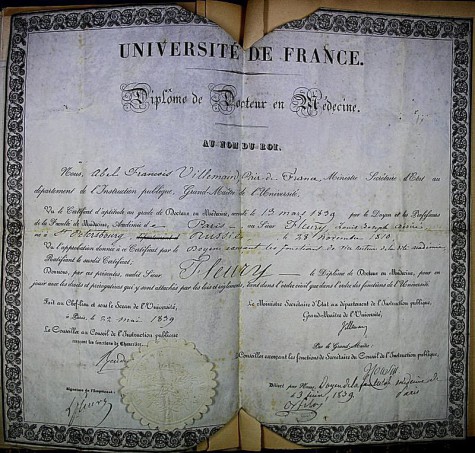 UNIVERSITÉ DE FRANCE.
Diplôme de Docteur en Médecine.
AU NOM DU ROI.
Nous, Abel François Villemain Pair de France, Ministre Secrétaire d'Etat au
département de l'Instruction publique, Grand-Maître de l'Université,
Vu le Certificat d'aptitude au grade de Docteur en Médecine, accordé le 13 mars 1839 par les Doyen et Professeurs
de la Faculté de Médecine, Académie de Paris au Sieur Fleury, Louis Joseph
né à St Petersbourg Russie le 28 Novembre
Vu l'approbation donnée à ce Certificat par le Doyen exerçant les fonctions de Recteur de la dite Académie
Ratifiant le susdit Certificat,
Donnons, par ces présentes, audit Sieur Fleury le Diplôme de Docteur en Médecine, pour en
jouir avec les droits et prérogatives qui y sont attachés par les lois et règlements, tant dans l'ordre civil que dans l'ordre des fonctions de l'Université.
Fait au Chef-lieu et sous le Sceau de l'Université,
à Paris le 22 mai 1839
Le Conseiller au Conseil de l'Instruction publique
exerçant les fonctions de Chancelier,
Le Ministre Secrétaire d'Etat au département de l'Instruction publique,
Grand-Maître de l'Université,
Villemain
Par le Grand-Maître:
Le Conseiller exerçant les fonctions de Secrétaire du Conseil de l'Instruction publique,
Signature de l'Impétrant:
L Fleury
Délivré par Nous, Doyen de la faculté de médecine de
Paris
le 3 juin 1839.
Orfila